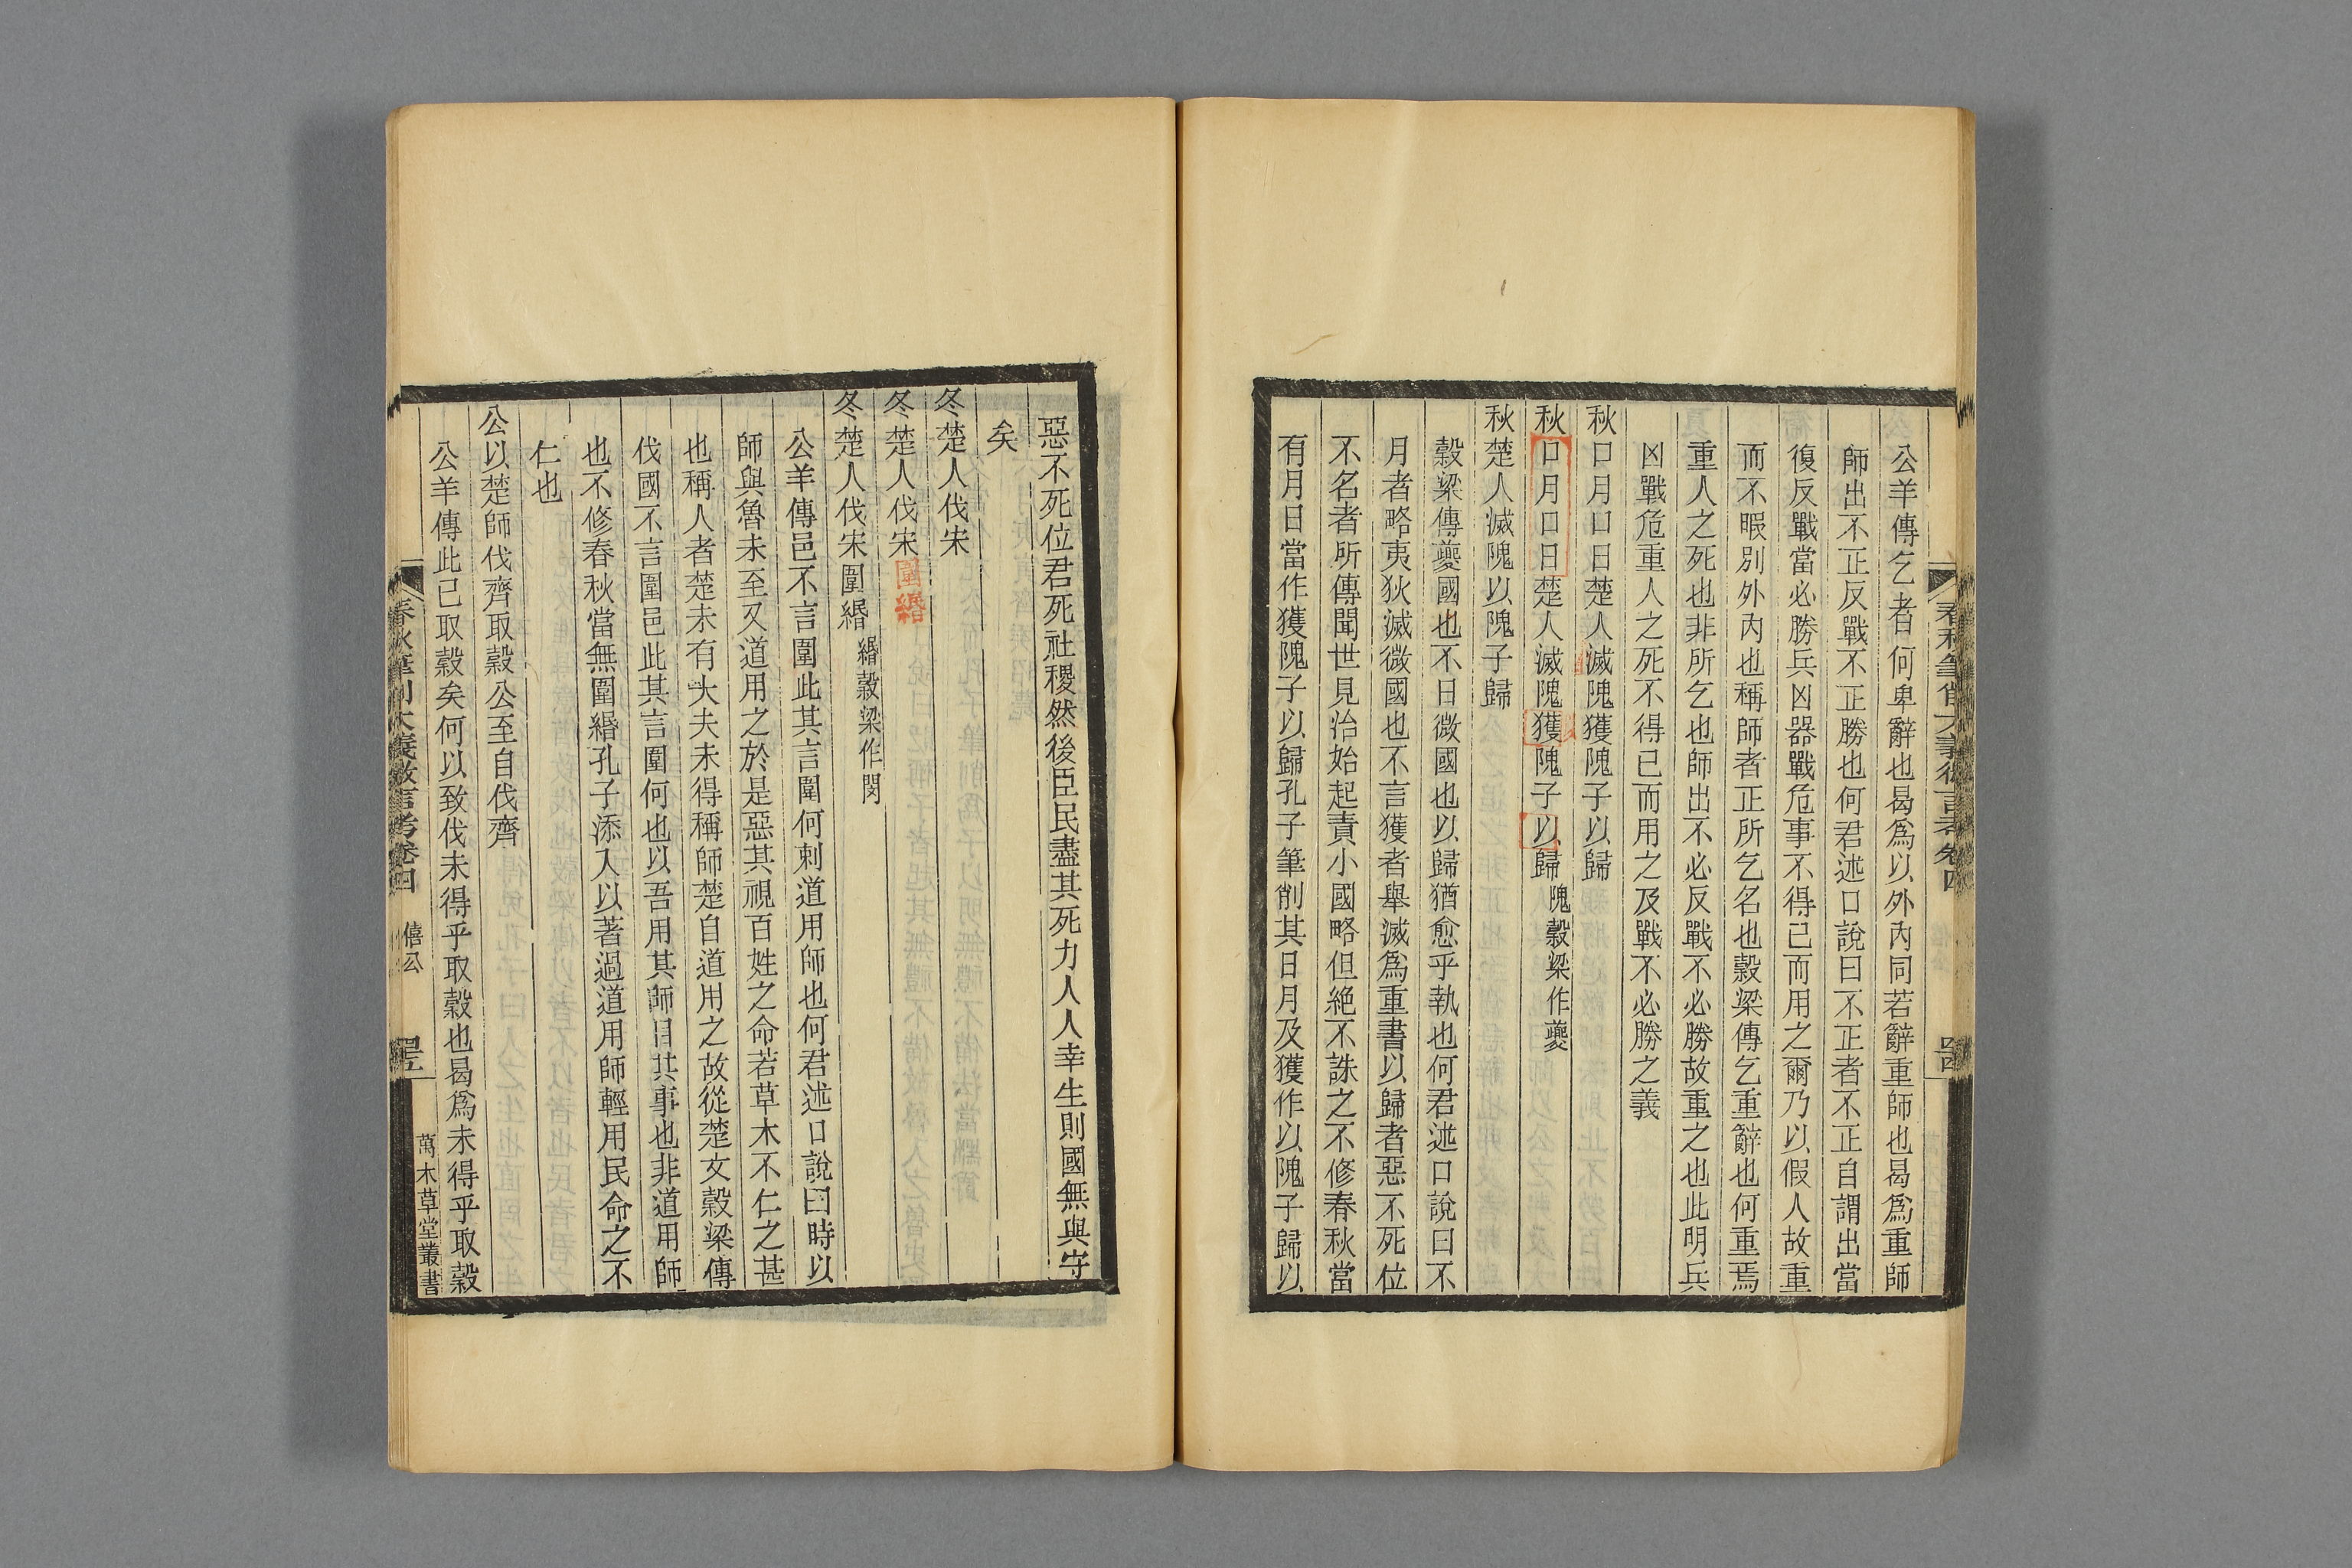 公羊傳乞者何卑辭也曷爲以外內同若辭重師也曷爲重師
師出不正反戰不正勝也何君述口說曰不正者不正自謂出當
復反戰當必勝兵凶器戰危事不得已而用之爾乃以假人故重
而不暇別外內也稱師者正所乞名也穀梁傳乞重辭也何重焉
重人之死也非所乞也師出不必反戰不必勝故重之也此明兵
凶戰危重人之死不得已而用之及戰不必勝之義
秋口月口日楚人滅隗獲隗子以歸
秋口月口日楚人滅隗獲以隗子以歸隗穀梁作夔
秋楚人滅隗以隗子歸
穀梁傳夔國也不日微國也以歸猶愈乎執也何君述口說曰不
月者略夷狄滅微國也不言獲者舉滅爲重書以歸者惡不死位
不名者所傳聞世見治始起責小國略但絕不誅之不修春秋當
有月日當作獲隗子以歸孔子筆削其日月及獲作以隗子歸以
惡不死位君死社稷然後臣民盡其死力人人幸生則國無與守
矣
冬楚人伐宋
冬楚人伐宋圍緡
冬楚人伐宋圍緡緡穀梁作閔
公羊傳邑不言圍此其言圍何刺道用師也何君述口說曰時以
師與魯未至又道用之於是惡其視百姓之命若草木不仁之甚
也稱人者楚未有大夫未得稱師楚自道用之故從楚文穀梁傳
伐國不言圍邑此其言圍何也以吾用其師目其事也非道用師
也不修春秋當無圍緡孔子添入以著過道用師輕用民命之不
仁也
公以楚師伐齊取穀公至自伐齊
公羊傳此已取穀矣何以致伐未得乎取穀也曷爲未得乎取穀
春秋筆削大義微言考卷四 僖公
萬木草堂叢書